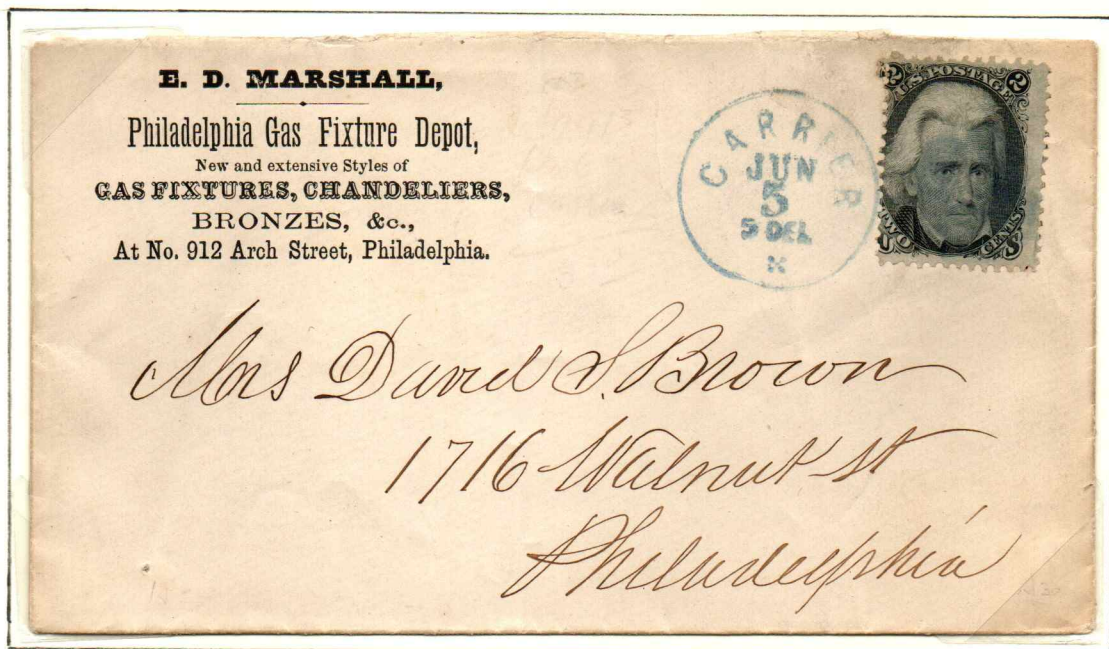 E. D. MARSHALL,
Philadelphia Gas Fixture Depot,
New and extensive Styles of
GAS FIXTURES, CHANDELIERS,
BRONZES, &c.,
At No. 912 Arch Street, Philadelphia.
CARRIER
JUN
5
5 DEL
2 U.S. POSTAGE 2
TWO CENTS
U S
Mrs David S. Brown
1716 Walnut St
Philadelphia